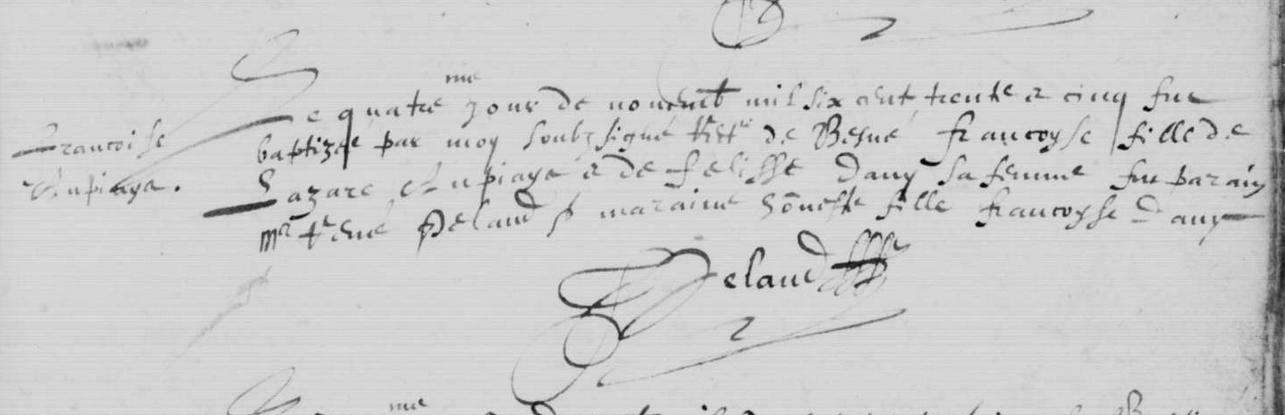 Francoise
Anpiaye.
Le quatre me jour de novemb mil six cent trente & cinq fut
baptizée par moy soubzsigné de Besné francoyse fille de
Lazare Anpiaye & de felisse Dany sa femme fut parain
Mr René Pelaud p maraine hōneste fille francoyse Dany
Pelaud
me